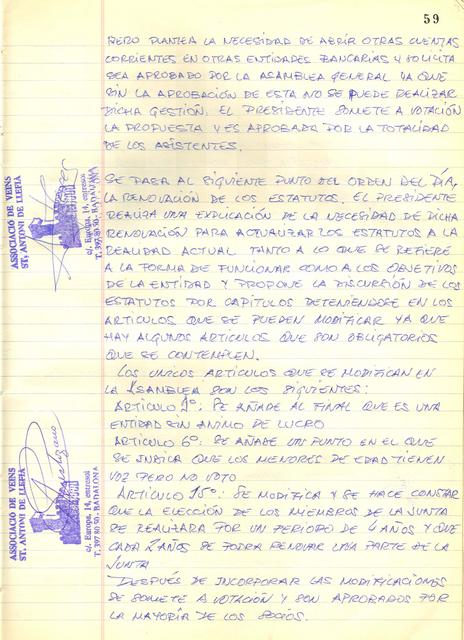 59
PERO PLANTEA LA NECESIDAD DE ABRIR OTRAS CUENTAS
CORRIENTES EN OTRAS ENTIDADES BANCARIAS Y SOLICITA
SEA APROBADO POR LA ASAMBLEA GENERAL YA QUE
SIN LA APROBACIÓN DE ESTA NO SE PUEDE REALIZAR
DICHA GESTIÓN. EL PRESIDENTE SOMETE A VOTACIÓN
LA PROPUESTA Y ES APROBADA POR LA TOTALIDAD
DE LOS ASISTENTES.
SE PASA AL SIGUIENTE PUNTO DEL ORDEN DEL DÍA,
LA RENOVACIÓN DE LOS ESTATUTOS. EL PRESIDENTE
REALIZA UNA EXPLICACIÓN DE LA NECESIDAD DE DICHA
RENOVACIÓN PARA ACTUALIZAR LOS ESTATUTOS A LA
REALIDAD ACTUAL TANTO A LO QUE SE REFIERE
A LA FORMA DE FUNCIONAR COMO A LOS OBJETIVOS
DE LA ENTIDAD Y PROPONE LA DISCURSIÓN DE LOS
ESTATUTOS POR CAPITULOS DETENIENDOSE EN LOS
ARTICULOS QUE SE PUEDEN MODIFICAR YA QUE
HAY ALGUNOS ARTICULOS QUE SON OBLIGATORIOS
QUE SE CONTEMPLEN.
LOS UNICOS ARTICULOS QUE SE MODIFICAN EN
LA ASAMBLEA SON LOS SIGUIENTES:
ARTICULO 1º: SE AÑADE AL FINAL QUE ES UNA
ENTIDAD SIN ANIMO DE LUCRO
ARTICULO 6º: SE AÑADE UN PUNTO EN EL QUE
SE INDICA QUE LOS MENORES DE EDAD TIENEN
VOZ PERO NO VOTO
ARTICULO 15º: SE MODIFICA Y SE HACE CONSTAR
QUE LA ELECCIÓN DE LOS MIEMBROS DE LA JUNTA
SE REALIZARA POR UN PERIODO DE 4 AÑOS Y QUE
CADA 2 AÑOS SE PODRA RENOVAR UNA PARTE DE LA
JUNTA
DESPUÉS DE INCORPORAR LAS MODIFICACIONES
SE SOMETE A VOTACIÓN Y SON APROBADOS POR
LA MAYORÍA DE LOS SOCIOS.
ASSOCIACIO DE VEINS
ST. ANTONI DE LLEFIÀ
c/. Europa, 14, entresol
T. 397 81 50. BADALONA
ASSOCIACIO DE VEINS
ST. ANTONI DE LLEFIÀ
c/. Europa, 14, entresol
T. 397 81 50. BADALONA